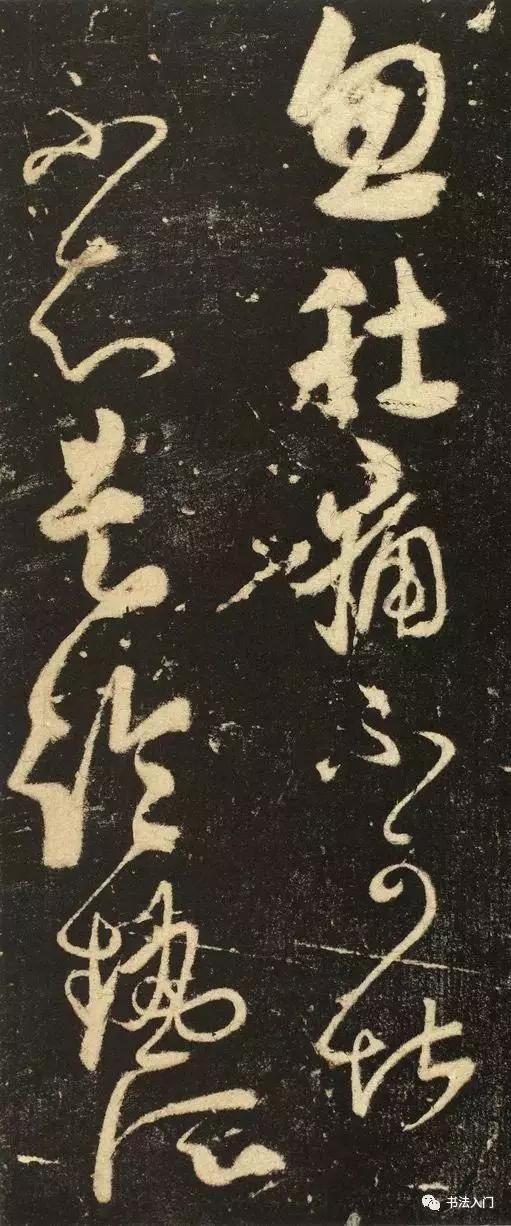 忽肚痛不可堪
不知是冷熱所
书法入门